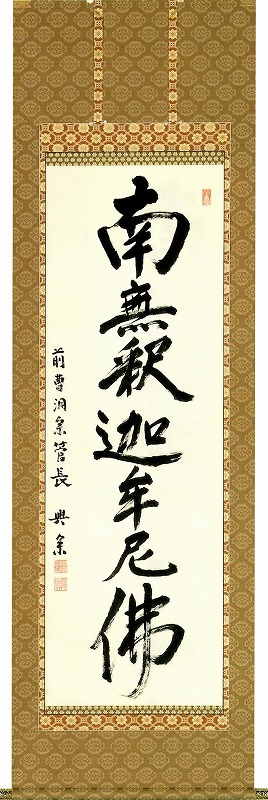 南無釈迦牟尼佛
前曹洞宗管長 興宗